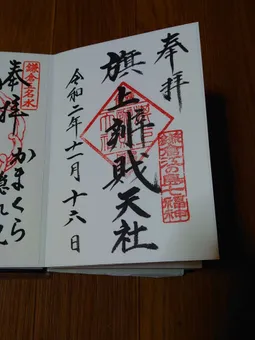 奉拝
旗上辨財天社
令和二年十一月十六日
鎌倉江の島七福神
鎌倉五名水
奉拝
かまくら